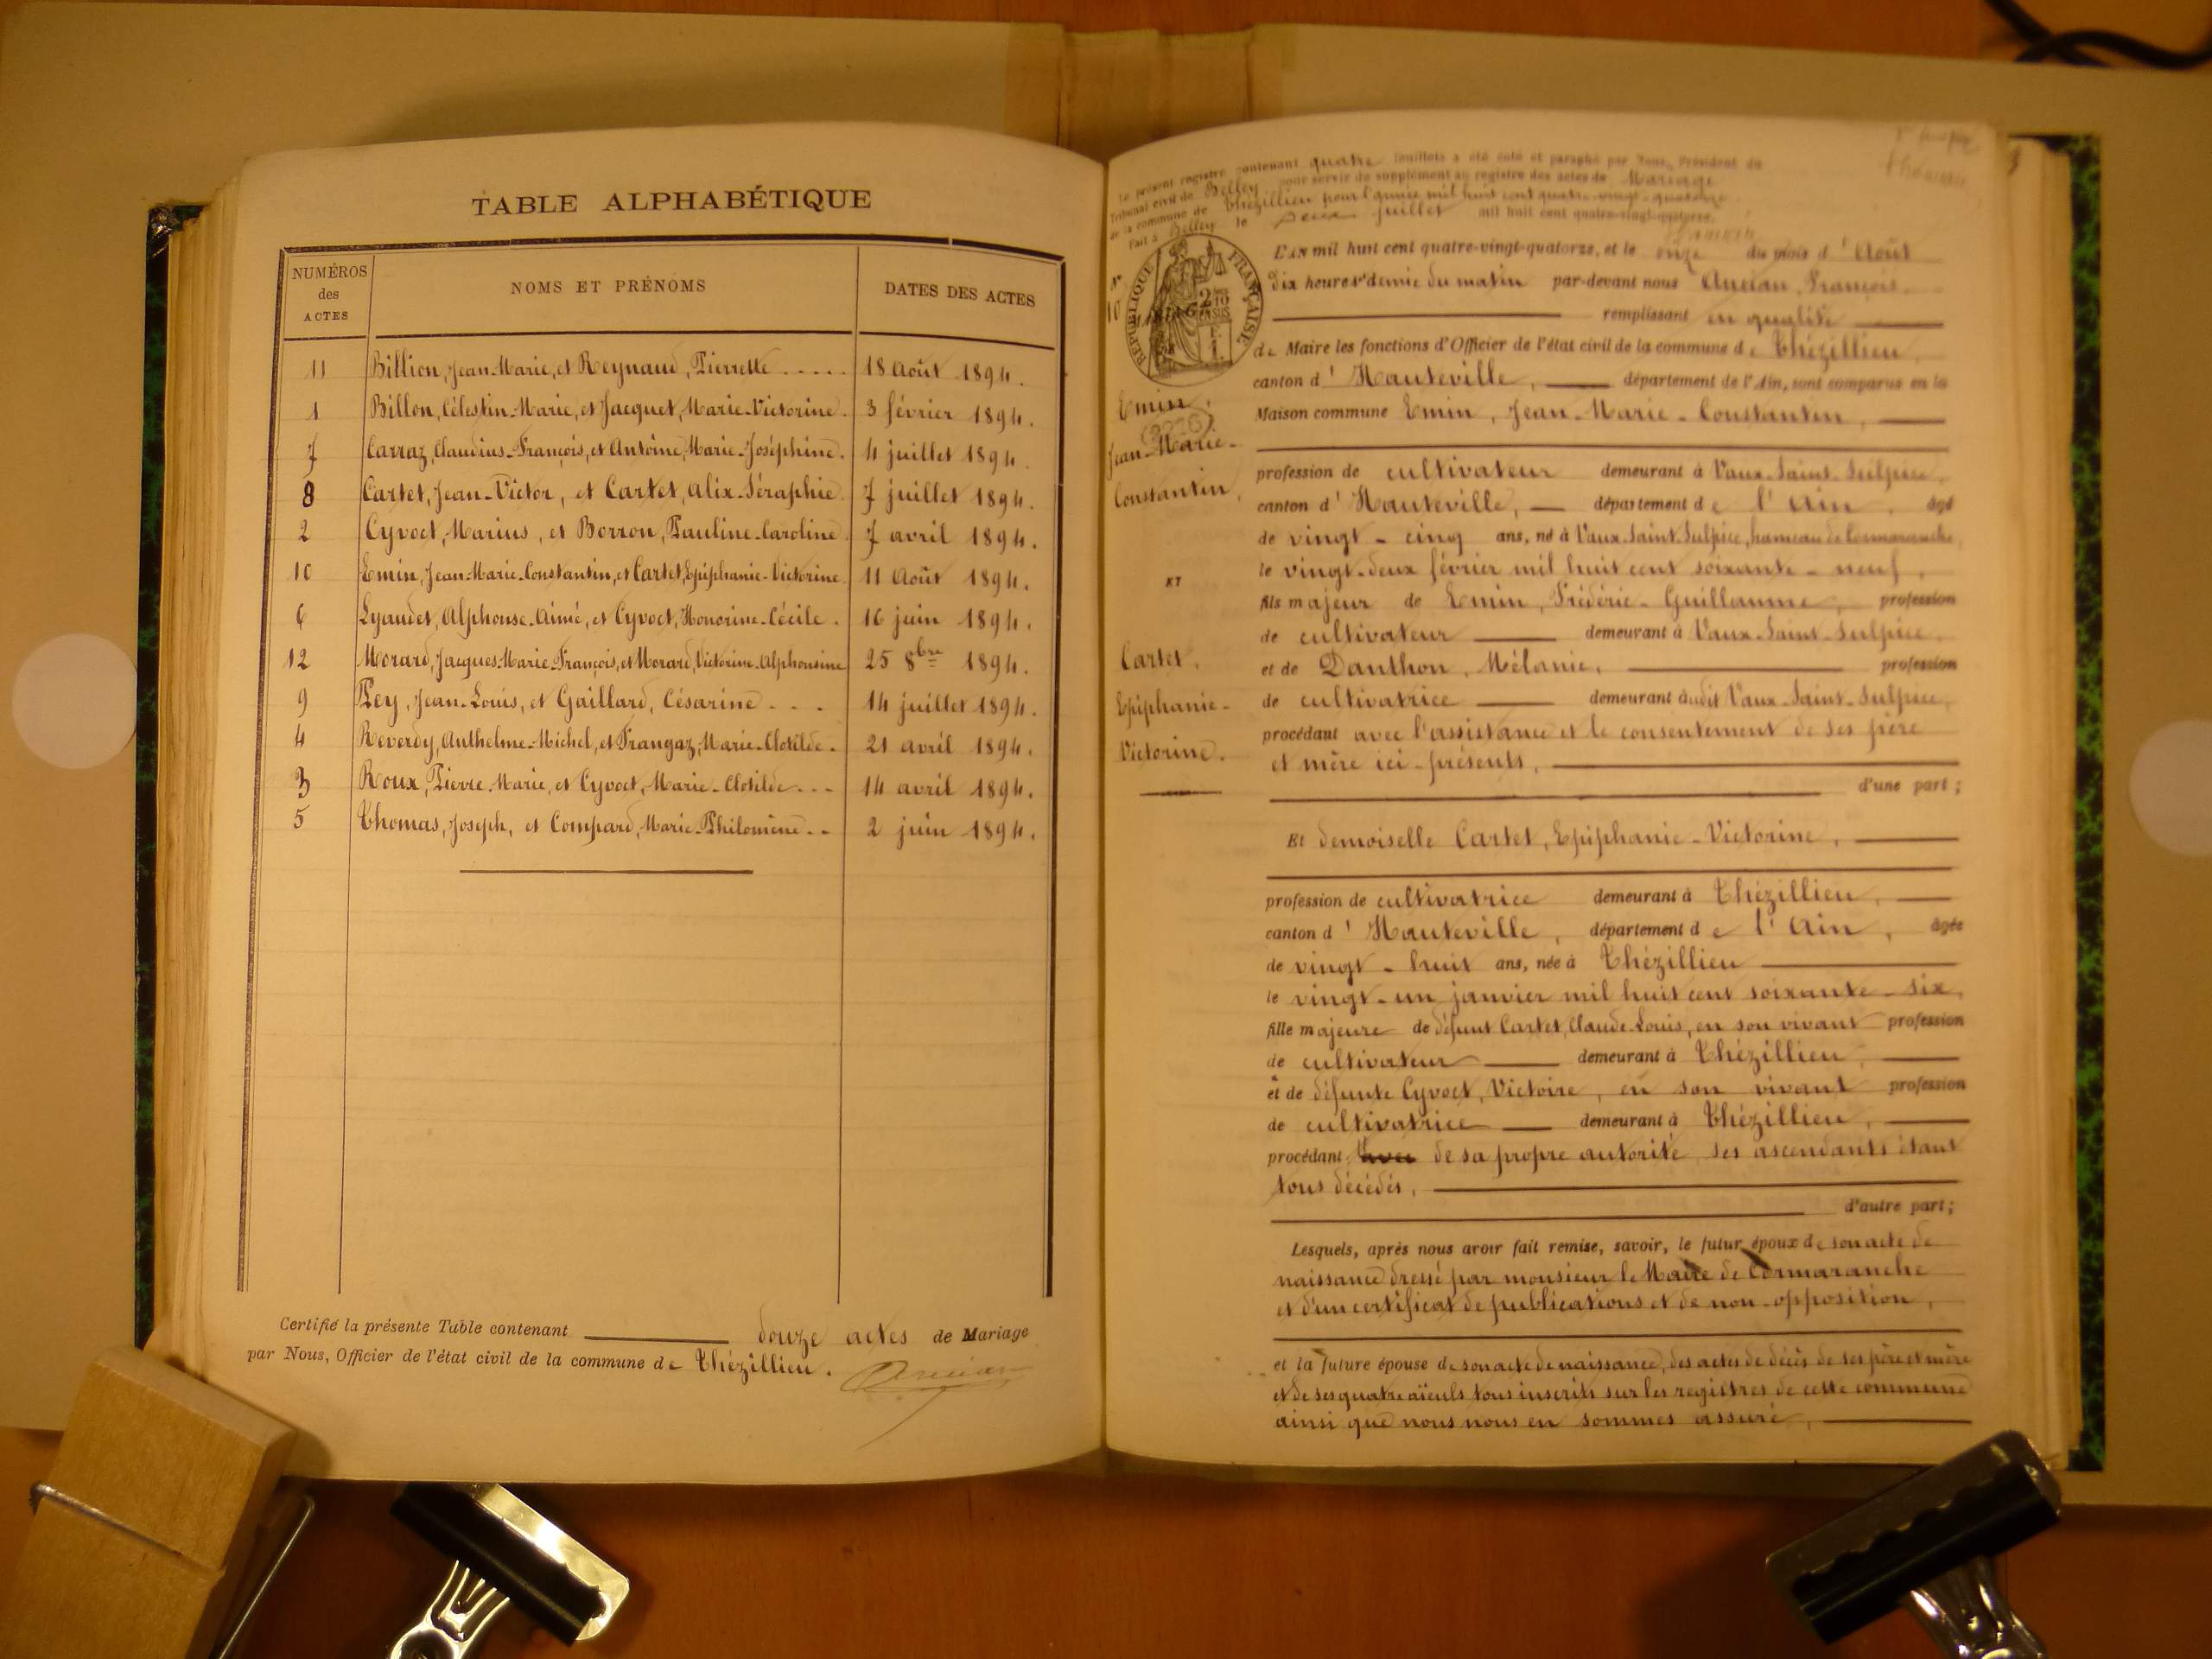 TABLE ALPHABÉTIQUE
NUMÉROS des ACTES
NOMS ET PRÉNOMS
DATES DES ACTES
11 Billion, Jean-Marie, et Reynaud, Pierrette ..... 18 Août 1894.
1 Billon, Célestin-Marie, et Jacquet, Marie-Victorine. 3 février 1894.
7 Carraz, Claudius-François, et Antoine, Marie-Joséphine. 4 juillet 1894.
8 Cartet, Jean-Victor, et Cartet, Alix-Séraphie. 7 juillet 1894.
2 Cyvoct, Marius, et Borron, Pauline-Caroline 7 avril 1894.
10 Emin, Jean-Marie-Constantin, et Cartet, Epiphanie-Victorine. 11 Août 1894.
6 Lyaudet, Alphonse-Aimé, et Cyvoct, Honorine-Cécile. 16 juin 1894.
12 Morard, Jacques-Marie-François, et Morard, Victorine-Alphonsine 25 8bre 1894.
9 Pey, Jean-Louis, et Gaillard, Césarine . . . 14 juillet 1894.
4 Reverdy, Anthelme-Michel, et Frangaz, Marie-Clotilde. 21 avril 1894.
3 Roux, Pierre-Marie, et Cyvoct, Marie-Clotilde... 14 avril 1894.
5 Thomas, Joseph, et Compard, Marie-Philomène.. 2 juin 1894.
Certifié la présente Table contenant douze actes de Mariage
par Nous, Officier de l'état civil de la commune de Thézillieu.
Le présent registre contenant quatre feuillets a été coté et paraphé par Nous, Président du
Tribunal civil de Belley pour servir de supplément au registre des actes de Mariage
de la commune de Thézillieu pour l'année mil huit cent quatre-vingt-quatorze
Fait à Belley le deux juillet mil huit cent quatre-vingt-quatorze.
RÉPUBLIQUE FRANÇAISE
N° 10
Emin,
Jean-Marie-
Constantin,
ET
Cartet,
Epiphanie-
Victorine.
L'AN mil huit cent quatre-vingt-quatorze, et le onze du mois d'Août
dix heures et demie du matin par-devant nous François
remplissant en qualité
de Maire les fonctions d'Officier de l'état civil de la commune de Thézillieu,
canton d'Hauteville, département de l'Ain, sont comparus en la
Maison commune Emin, Jean-Marie-Constantin,
profession de cultivateur demeurant à Vaux-Saint-Sulpice,
canton d'Hauteville, département de l'Ain, âgé
de vingt-cinq ans, né à Vaux-Saint-Sulpice, hameau de Cormaranche,
le vingt-deux février mil huit cent soixante-neuf,
fils majeur de Emin, Frédéric-Guillaume, profession
de cultivateur demeurant à Vaux-Saint-Sulpice,
et de Danthon, Mélanie, profession
de cultivatrice demeurant audit Vaux-Saint-Sulpice,
procédant avec l'assistance et le consentement de ses père
et mère ici-présents,
d'une part;
Et demoiselle Cartet, Epiphanie-Victorine,
profession de cultivatrice demeurant à Thézillieu,
canton d'Hauteville, département de l'Ain, âgée
de vingt-huit ans, née à Thézillieu
le vingt-un janvier mil huit cent soixante-six,
fille majeure de défunt Cartet, Claude-Louis, en son vivant profession
de cultivateur demeurant à Thézillieu,
et de défunte Cyvoct, Victoire, en son vivant profession
de cultivatrice demeurant à Thézillieu,
procédant avec de sa propre autorité ses ascendants étant
tous décédés,
d'autre part;
Lesquels, après nous avoir fait remise, savoir, le futur époux de son acte de
naissance dressé par monsieur le Maire de Cormaranche
et d'un certificat de publications et de non-opposition,
et la future épouse de son acte de naissance, des actes de décès de ses père et mère
et de ses quatre aïeuls tous inscrits sur les registres de cette commune
ainsi que nous nous en sommes assuré,